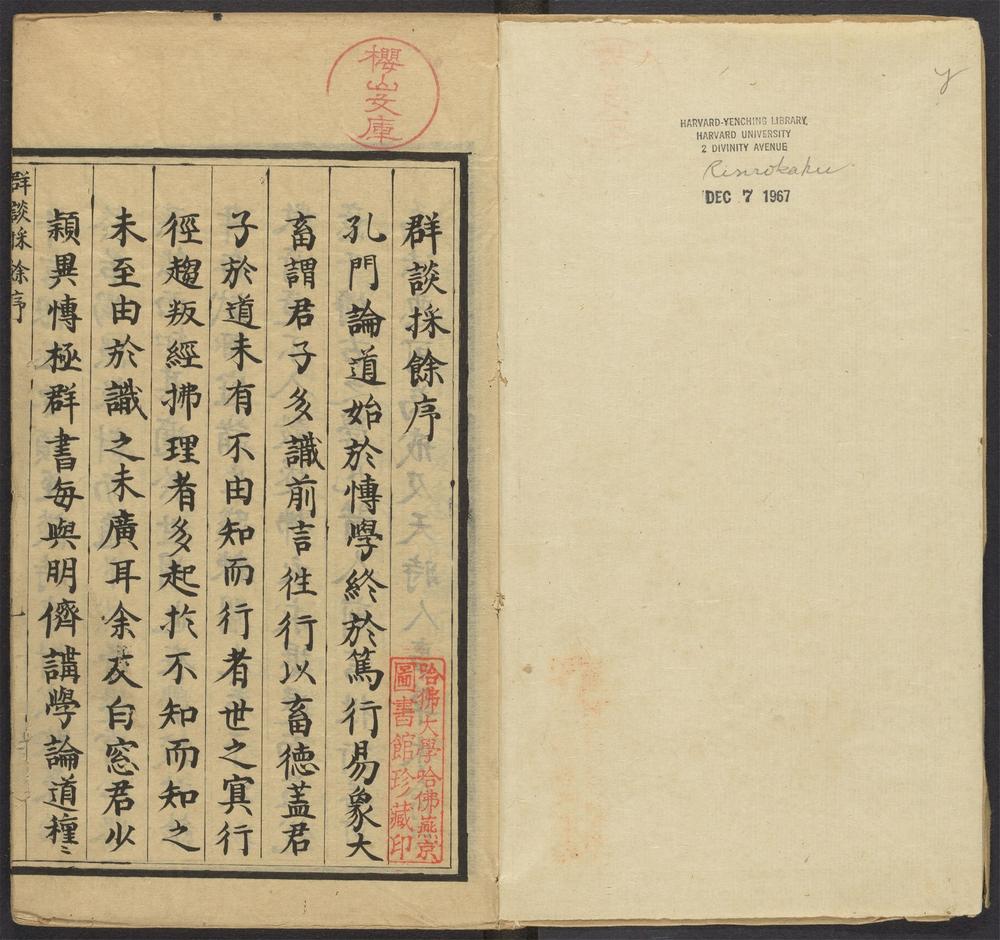 HARVARD-YENCHING LIBRARY,
HARVARD UNIVERSITY
2 DIVINITY AVENUE
Rinrokaku
DEC 7 1967
y
櫻山文庫
群談採餘序
哈佛大學哈佛燕京
圖書館珍藏印
孔門論道始於慱學終於篤行易象大
畜謂君子多識前言徃行以畜德蓋君
子於道未有不由知而行者世之寘行
徑趨叛經拂理者多起扵不知而知之
未至由於識之未廣耳余友白窓君少
穎異慱極群書每與明儕講學論道種〻
群談採餘序
一